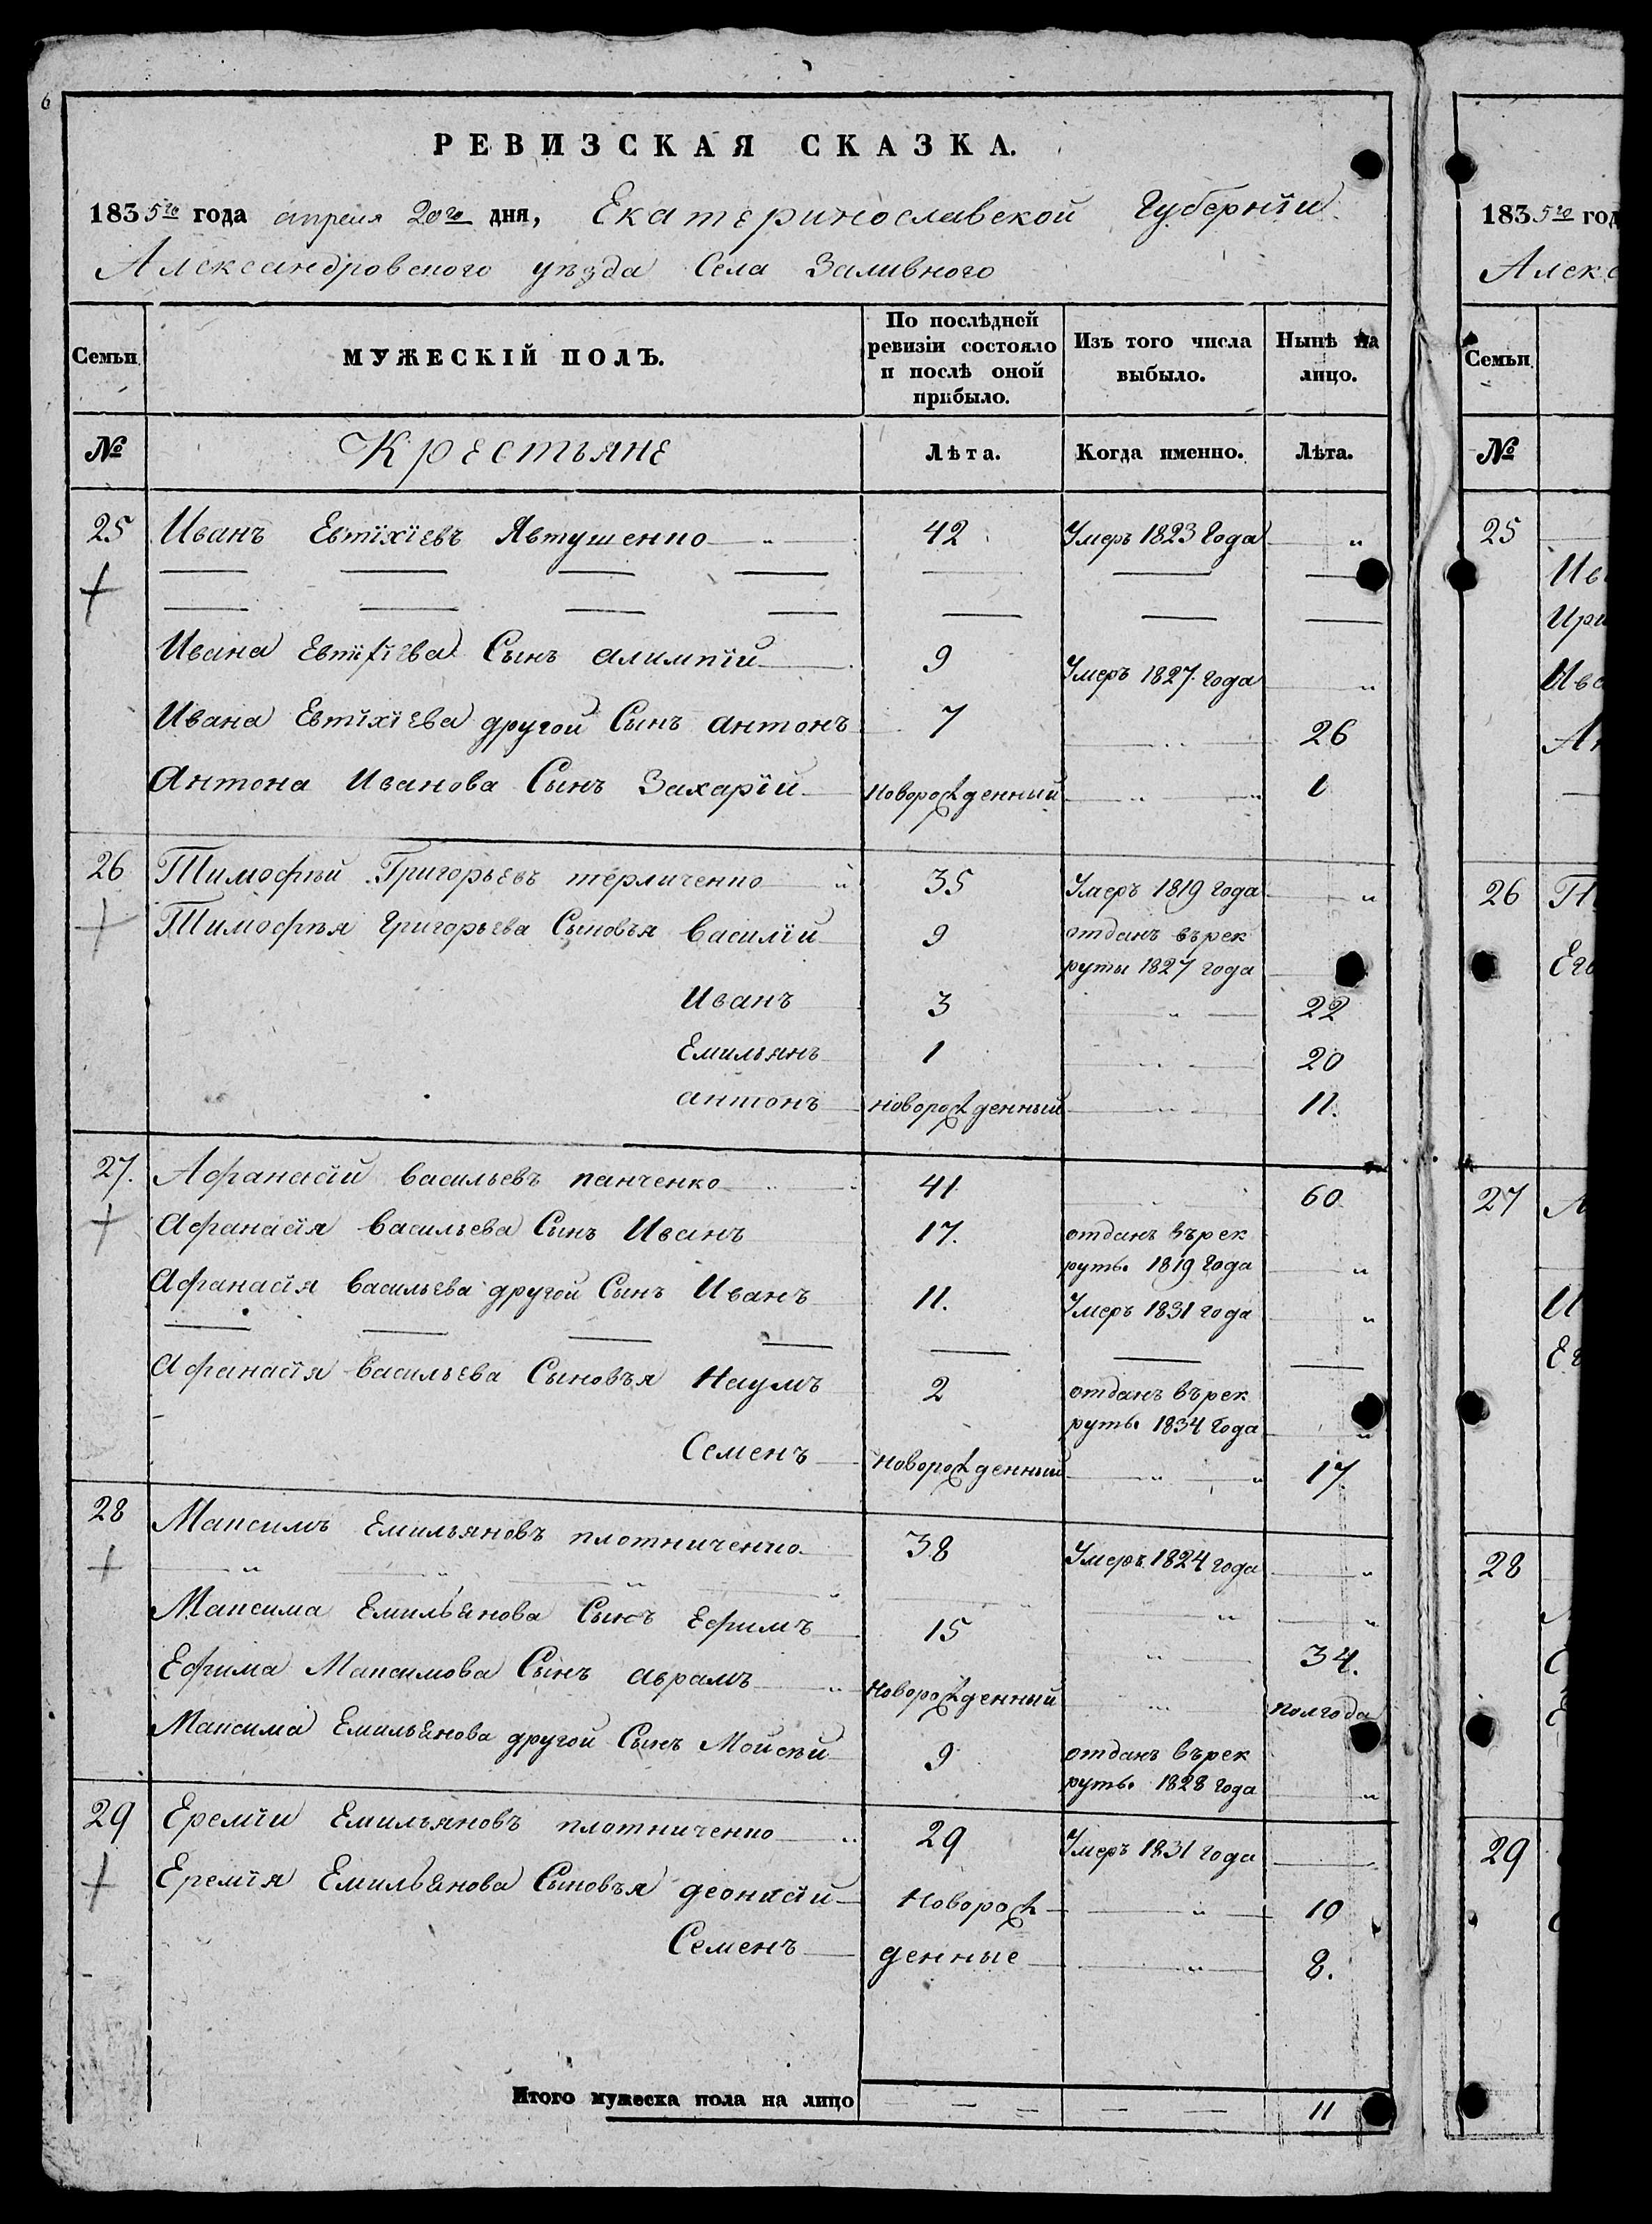 6
РЕВИЗСКАЯ СКАЗКА.
1835го года апреля 20го дня, Екатеринославской Губернïи
Александровского уѣзда Села Заливного
Семьи МУЖЕСКІЙ ПОЛЪ. По послѣдней ревизіи состояло и послѣ оной прибыло. Изъ того числа выбыло. Нынѣ на лицо.
№ Крестьяне Лѣта. Когда именно. Лѣта.
25 Иванъ Евтïхïевъ Явтушенко 42 Умеръ 1823 Года "
Ивана Евтïхïева Сынъ алимпïй 9 Умеръ 1827 года "
Ивана Евтïхïева другой Сынъ антонъ 7 26
Антона Иванова Сынъ Захарïй новорожденный 1
26 Тимофѣй Григорьевъ терличенко 35 Умеръ 1819 года "
Тимофѣя Григорьева Сыновья Василïй 9 отданъ върек
руты 1827 года
Иванъ 3 22
Емильянъ 1 20
антонъ новорожденный 11.
27. Афанасïй васильевъ панченко 41 60
Афанасïя васильева Сынъ Иванъ 17. отданъ върек
рутъ. 1819 Года "
Афанасïя васильева другой Сынъ Иванъ 11. Умеръ 1831 года "
Афанасïя васильева Сыновья Наумъ 2 отданъ върек
рутъ. 1834 Года "
Семенъ новорожденный 17
28 Максимъ Емильяновъ плотниченко 38 Умеръ 1824 года "
Максима Емильянова Сынъ Ефимъ 15 34.
Ефима Максимова Сынъ аврамъ новорожденный полгода
Максима Емильянова другой Сынъ Мойсѣй 9 отданъ върек
рутъ. 1828 года "
29 Еремïй Емильяновъ плотниченко 29 Умеръ 1831 года
Еремïя Емильянова Сыновья деонисïй новорож 10
Семенъ денные 8.
Итого мужеска пола на лицо 11
1835го год
Алекс
Семьи
№
25
Ив
Ири
Ива
Ан
26
27
28
29